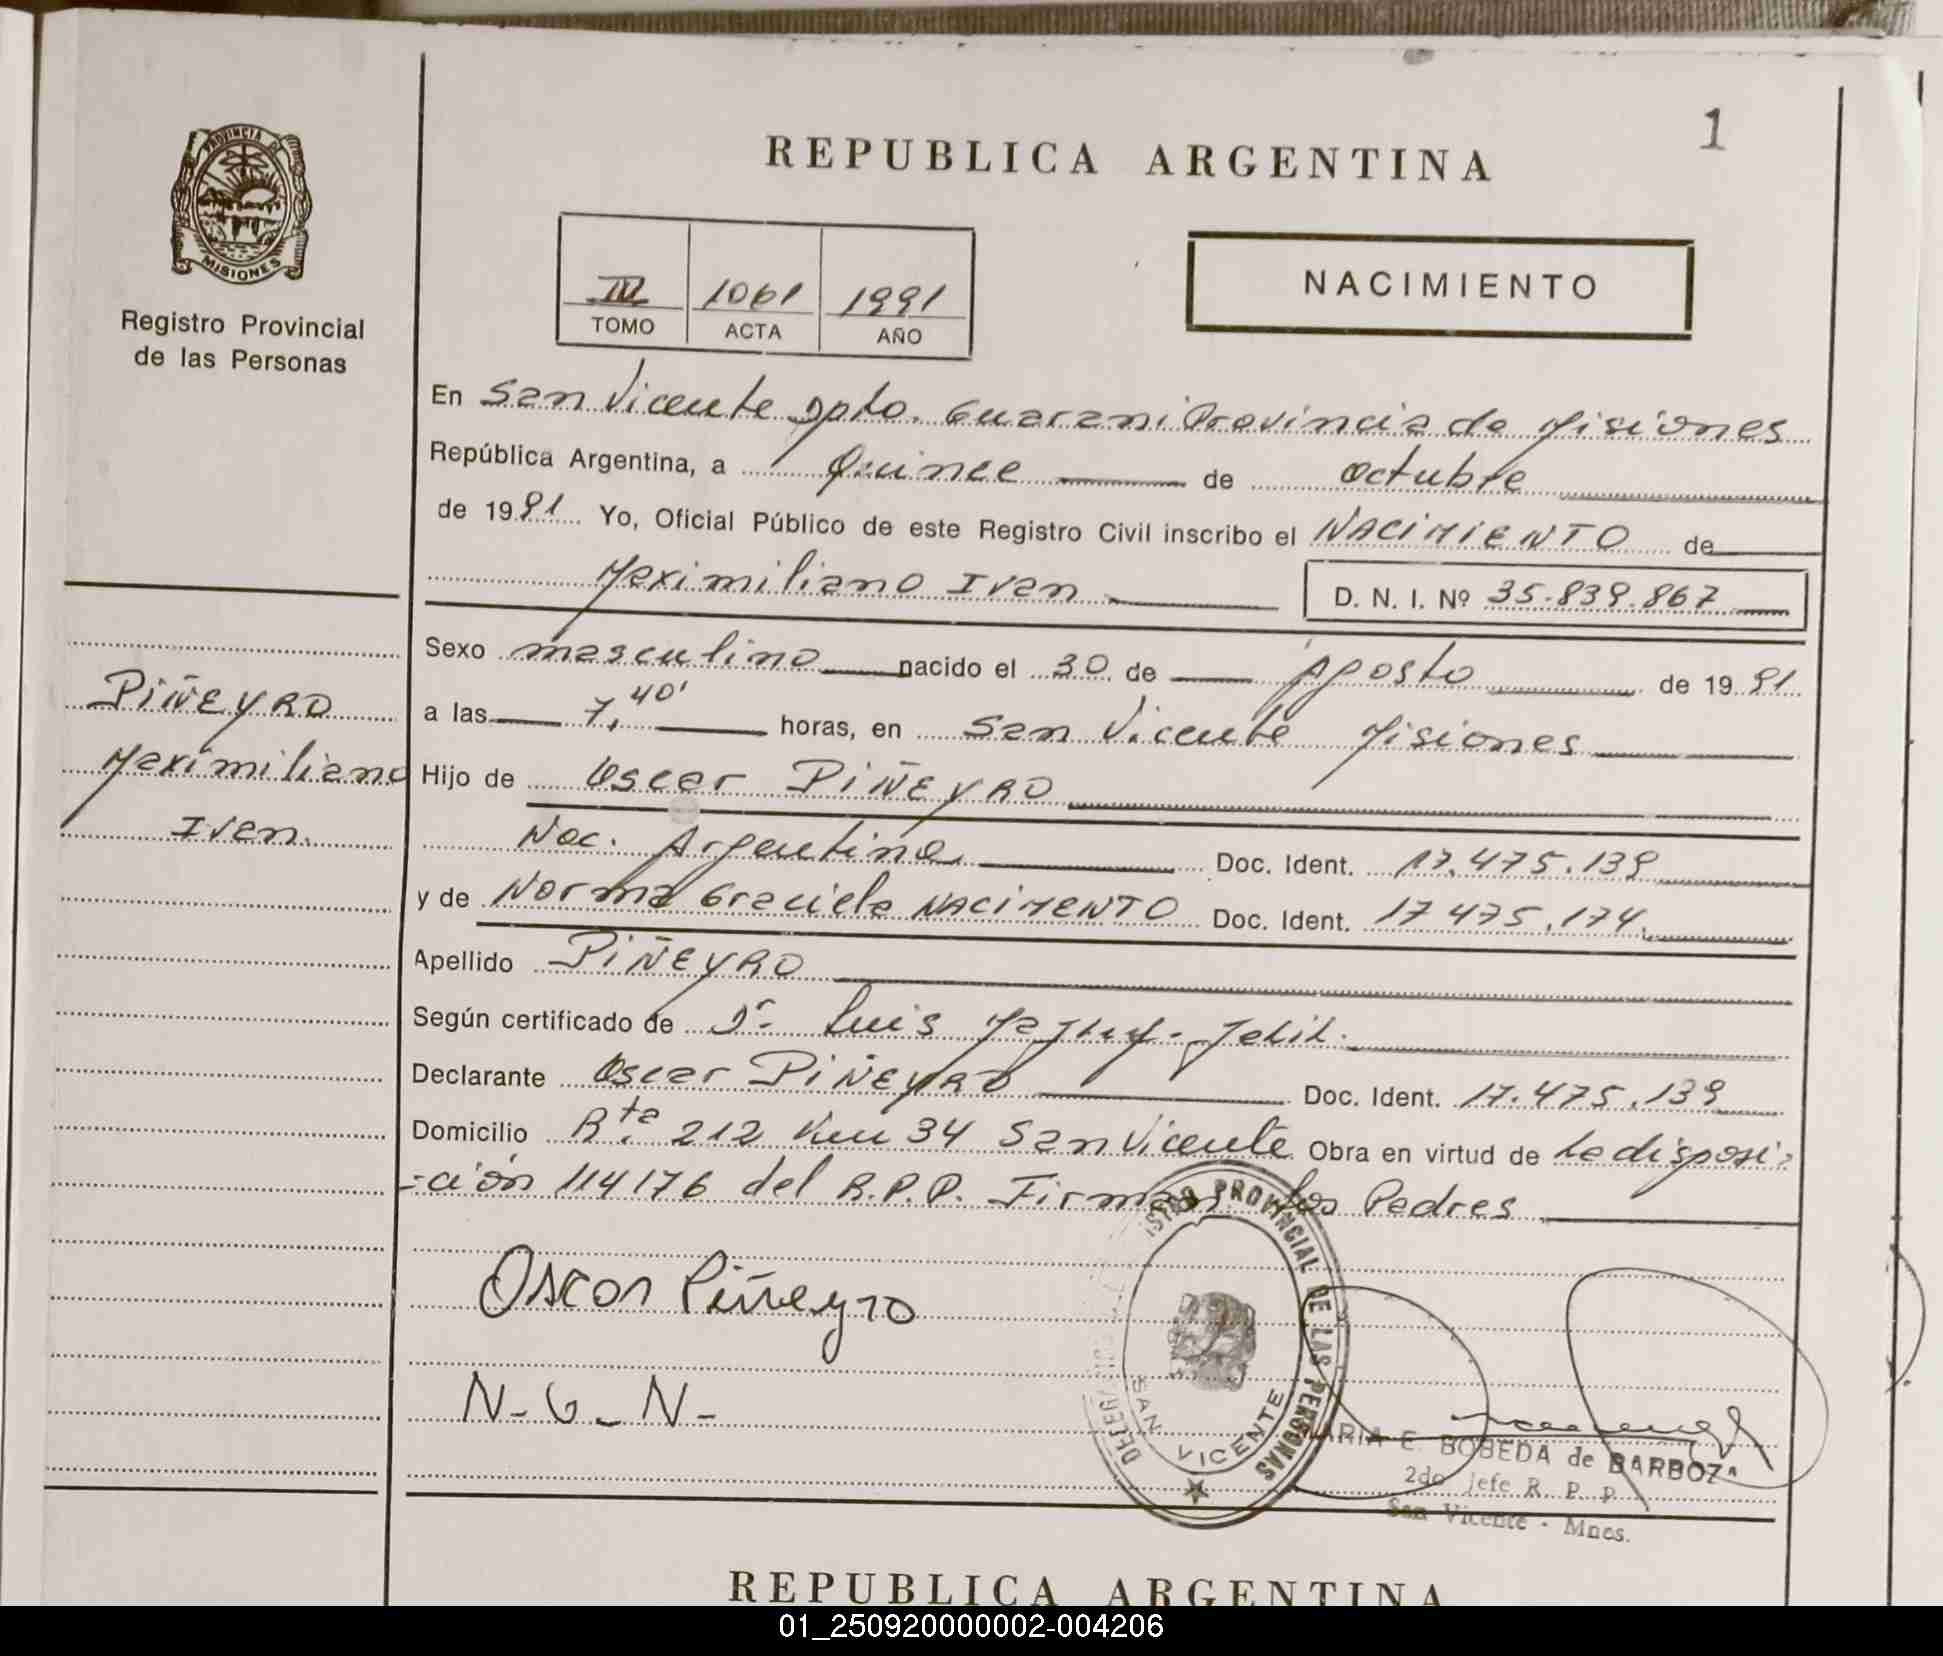 1
REPUBLICA ARGENTINA
PROVINCIA DE
MISIONES
Registro Provincial
de las Personas
NACIMIENTO
1061 1991
TOMO ACTA AÑO
En San Vicente Dpto. Guarani Provincia de Misiones
República Argentina, a Quince de octubre
de 1991 Yo, Oficial Público de este Registro Civil inscribo el NACIMIENTO de
Maximiliano Ivan
D. N. I. Nº 35.839.867
PIÑEYRO
Maximiliano
Ivan.
Sexo masculino nacido el 30 de Agosto de 1991
a las 7,40' horas, en San Vicente Misiones
Hijo de Oscar PIÑEYRO
Nac. Argentina Doc. Ident. 17.475.139
y de Norma Graciela NACIMENTO Doc. Ident. 17 475.174.
Apellido PIÑEYRO
Según certificado de Dr. Luis
Declarante Oscar PIÑEYRO Doc. Ident. 17.475.139
Domicilio Rta. 212 Km 34 San Vicente Obra en virtud de la disposi-
-ción 114176 del R.P.P. Firman los Padres
Oscar Piñeyro
N-G-N-
PROVINCIAL DE LAS PERSONAS
SAN VICENTE
MARIA E. BOBEDA de BARBOZA
2do Jefe R. P. P.
San Vicente - Mnes.
REPUBLICA ARGENTINA
01_250920000002-004206